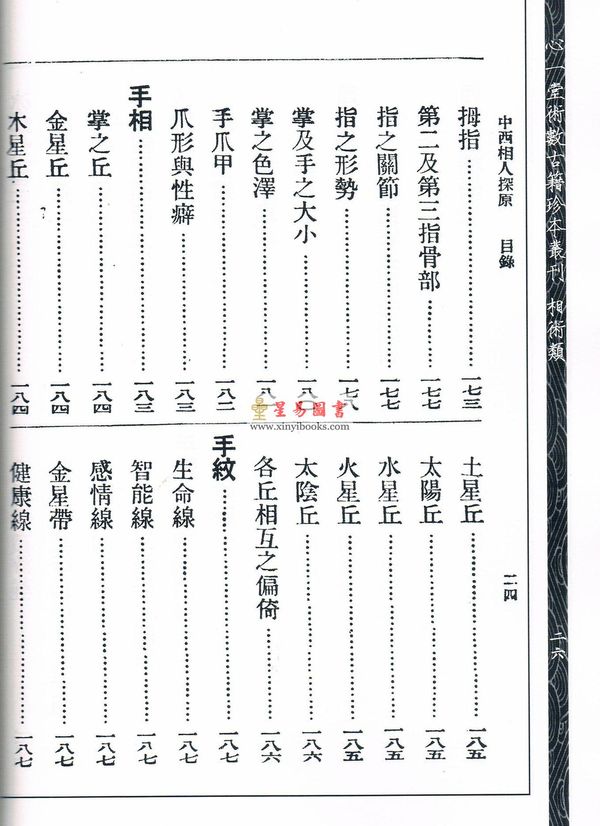 心一堂術數古籍珍本叢刊 相術類
二六
中西相人探原 目錄
二四
拇指⋯⋯一七三
第二及第三指骨部⋯⋯一七七
指之關節⋯⋯一七七
指之形勢⋯⋯一七八
掌及手之大小⋯⋯一八〇
掌之色澤⋯⋯一八一
手爪甲⋯⋯一八二
爪形與性癖⋯⋯一八三
手相⋯⋯一八三
掌之丘⋯⋯一八四
金星丘⋯⋯一八四
木星丘⋯⋯一八四
土星丘⋯⋯一八五
太陽丘⋯⋯一八五
水星丘⋯⋯一八五
火星丘⋯⋯一八五
太陰丘⋯⋯一八六
各丘相互之偏倚⋯⋯一八六
手紋⋯⋯一八七
生命線⋯⋯一八七
智能線⋯⋯一八七
感情線⋯⋯一八七
金星帶⋯⋯一八七
健康線⋯⋯一八七
星易圖書
www.xinyibooks.com